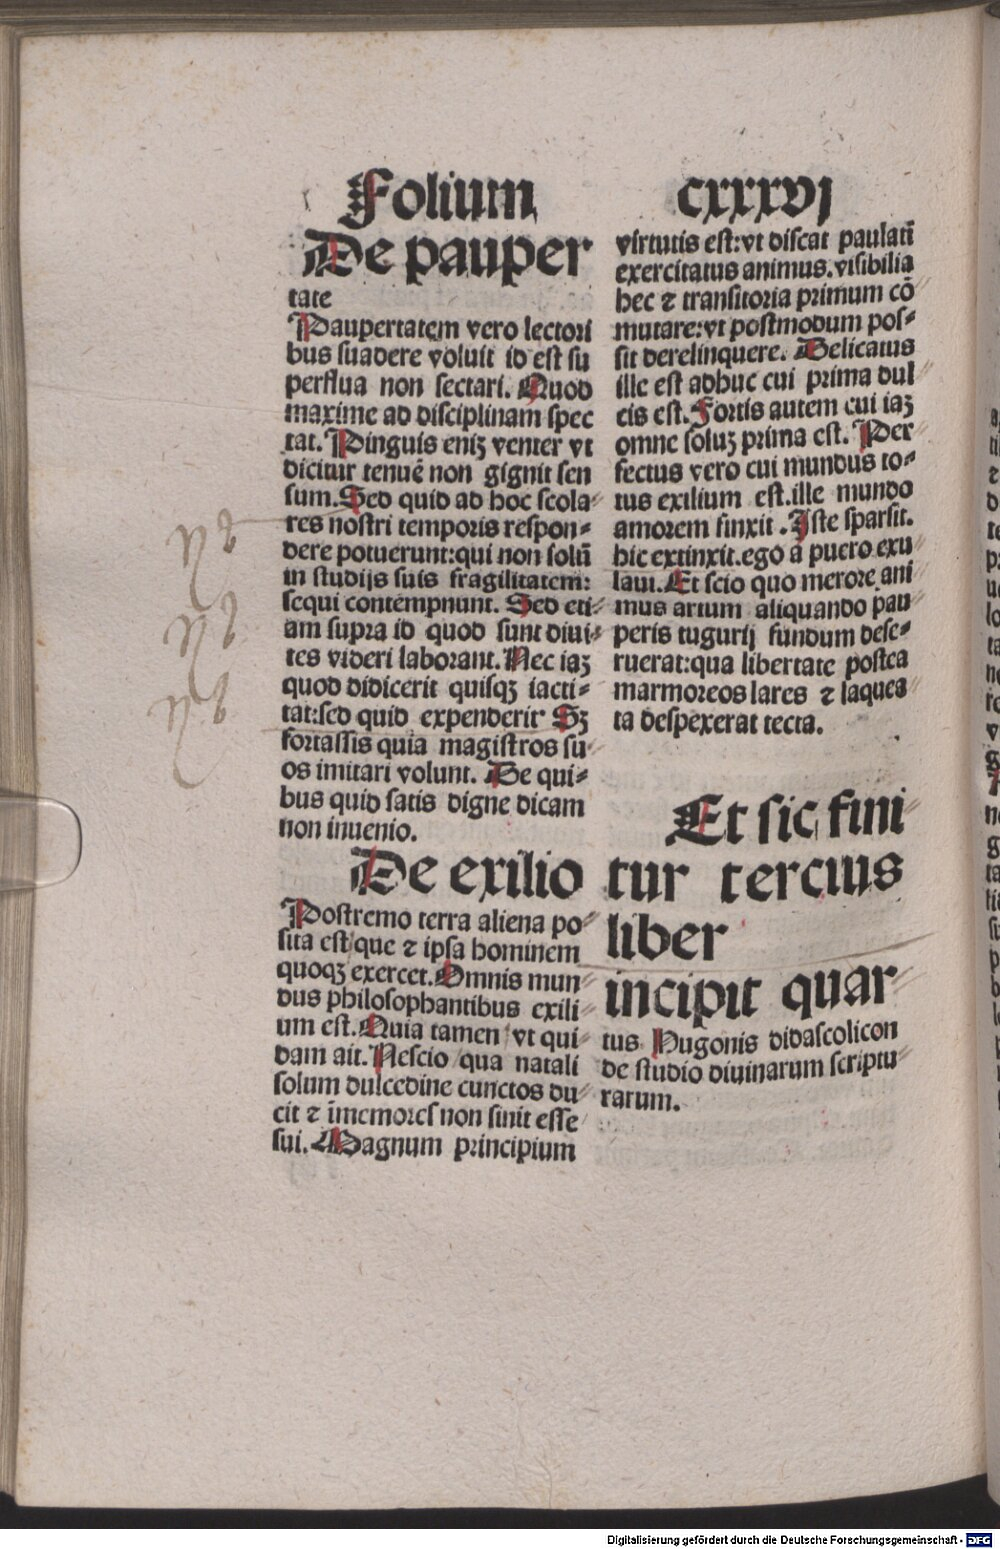 Folium
De pauper
tate
Paupertatem vero lectori
bus suadere voluit id est su
perflua non sectari. Quod
maxime ad disciplinam spec
tat. Pinguis eniꝫ venter vt
dicitur tenuē non gignit sen
sum. Sed quid ad hoc scola⸗
res nostri temporis respon⸗
dere potuerunt:qui non solū
in studijs suis fragilitatem:
sequi contempnunt. Sed eti⸗
am supra id quod sunt diui⸗
tes videri laborant. Nec iaꝫ
quod didicerit quisqꝫ iacti⸗
tat:sed quid expenderit Sꝫ
fortassis quia magistros su
os imitari volunt. De qui⸗
bus quid satis digne dicam
non inuenio.
De exilio
Postremo terra aliena po⸗
sita est que ⁊ ipsa hominem
quoqꝫ exercet. Omnis mun
dus philosophantibus exili
um est. Quia tamen vt qui
dam ait. Nescio qua natali
solum dulcedine cunctos du
cit ⁊ īmemores non sinit esse
sui. Magnum principium
cxxxvj
virtutis est:vt discat paulatī
exercitatus animus.visibilia
hec ⁊ transitoria primum cō
mutare:vt postmodum pos⸗
sit derelinquere. Delicatus
ille est adhuc cui prima dul
cis est. Fortis autem cui iaꝫ
omne soluꝫ prima est. Per
fectus vero cui mundus to⸗
tus exilium est.ille mundo
amorem finxit . Iste sparsit.
hic extinxit.ego a puero exu
laui. Et scio quo merore ani
mus artum aliquando pau
peris tugurij fundum dese⸗
ruerat:qua libertate postea
marmoreos lares ⁊ laquea
ta despexerat tecta.
Et sic fini
tur tercius
liber
incipit quar
tus Hugonis didascolicon
de studio diuinarum scriptu
rarum.
Digitalisierung gefördert durch die Deutsche Forschungsgemeinschaft - DFG